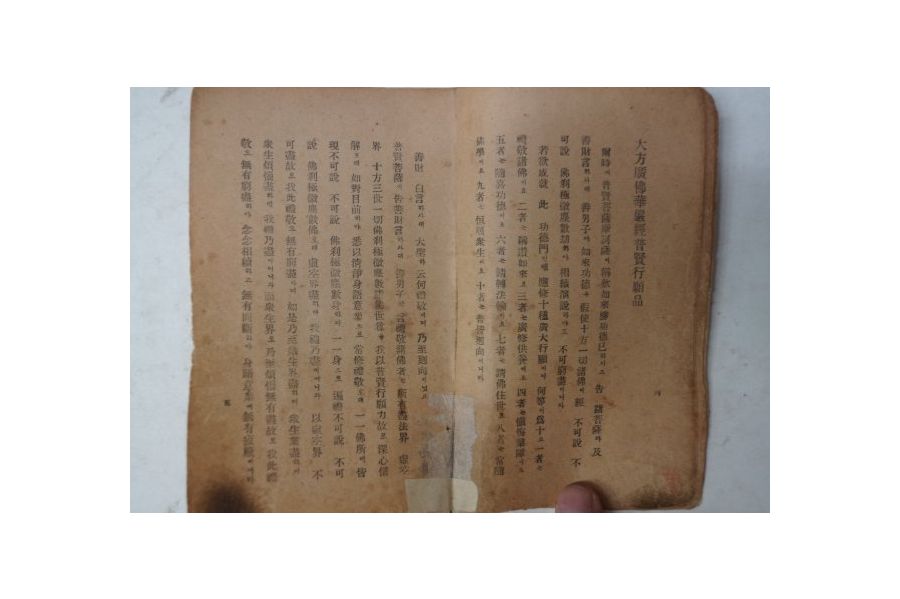 大方廣佛華嚴經普賢行願品
爾時에 普賢菩薩摩訶薩이 稱歎如來勝功德已하시고 告 諸菩薩과 及
善財言하사대 善男子야 如來功德은 假使十方一切諸佛이 經 不可說 不
可說 佛刹極微塵數劫하야 相續演說하야도 不可窮盡이니라
若欲成就 此 功德門인댄 應修十種廣大行願이니 何等이 爲十고 一者는
禮敬諸佛이요 二者는 稱讚如來요 三者는 廣修供養이요 四者는 懺悔業障이요
五者는 隨喜功德이요 六者는 請轉法輪이요 七者는 請佛住世요 八者는 常隨
佛學이요 九者는 恒順衆生이요 十者는 普皆廻向이니라
善財 白言하사대 大聖하 云何禮敬이며 乃至廻向이닛고
普賢菩薩이 告善財言하사대 善男子야 言禮敬諸佛者는 所有盡法界 虛空
界 十方三世一切佛刹極微塵數諸佛世尊을 我以普賢行願力故로 深心信
解호대 如對目前하야 悉以淸淨身語意業으로 常修禮敬호대 一一佛所에 皆
現不可說 不可說 佛刹極微塵數身하야 一一身으로 遍禮不可說 不可
說 佛刹極微塵數佛호대 虛空界盡하야 我禮乃盡이어니와 以虛空界 不
可盡故로 我此禮敬도 無有窮盡하며 如是乃至衆生界盡하며 衆生業盡하며
衆生煩惱盡하면 我禮乃盡이어니와 而衆生界로 乃至煩惱無有盡故로 我此禮
敬도 無有窮盡하야 念念相續하고 無有間斷하야 身語意業에 無有疲厭이니라
五